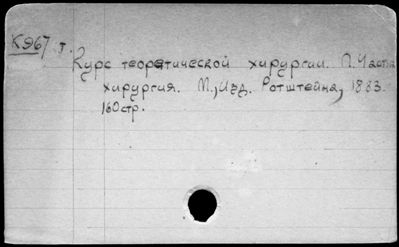 К967 т.
Курс теоретической хирургии. П. Частн
хирургия. М., Изд. Ротштейна, 1883.
160стр.